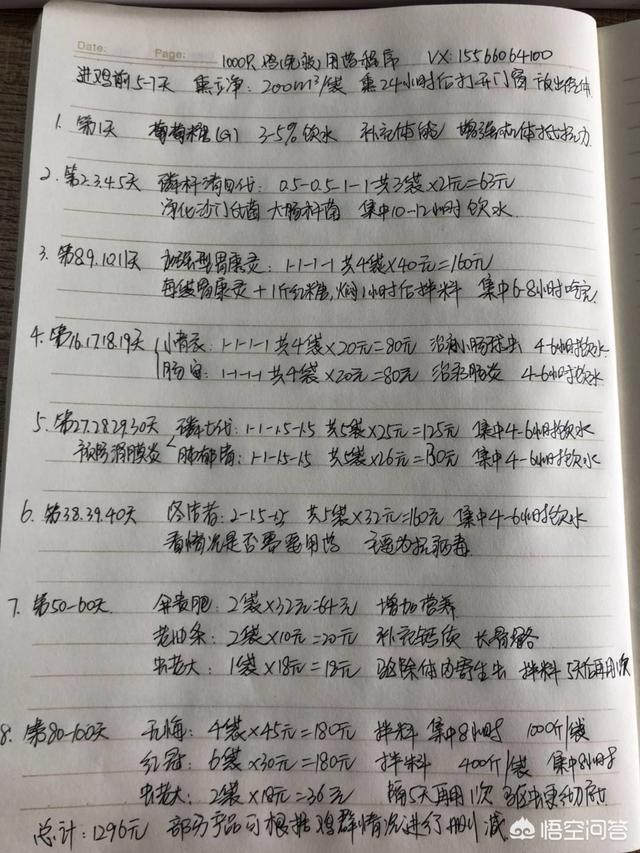 Date: Page: 1000只鸡(免疫)用药程序 VX: 15566064100
进鸡前5-7天 熏立净: 200m³/袋 熏24小时后打开门窗放出气体
1. 第1天 葡萄糖(G) 3-5%饮水 补充体能 增强机体抵抗力
2. 第2.3.4.5天 磷杆清四代: 0.5-0.5-1-1 共3袋×21元=63元
净化沙门氏菌 大肠杆菌 集中10-12小时饮水
3. 第8.9.10.11天 加强型胃康灵: 1-1-1-1 共4袋×40元=160元
每袋胃康灵+1斤红糖,焖1小时后拌料 集中6-8小时吃完
4. 第16.17.18.19天 小青衣: 1-1-1-1 共4袋×20元=80元 治小肠球虫 4-6小时饮水
肠: 1-1-1-1 共4袋×20元=80元 治肠炎 4-6小时饮水
5. 第27.28.29.30天 磷七代: 1-1-1.5-1.5 共5袋×25元=125元 集中4-6小时饮水
预防浆膜炎 肺郁清: 1-1-1.5-1.5 共5袋×26元=130元 集中4-6小时饮水
6. 第38.39.40天 终结者: 2-1.5-1.5 共5袋×32元=160元 集中4-6小时饮水
看情况是否需要用药 主要为抗病毒
7. 第50-60天 肥: 2袋×32元=64元 增加营养
老油条: 2袋×10元=20元 补充钙质 长骨骼
虫老大: 1袋×18元=18元 驱除体内寄生虫 拌料 5天后再用1次
8. 第80-100天 无悔: 4袋×45元=180元 拌料 集中8小时 1000斤/袋
红冠: 6袋×30元=180元 拌料 400斤/袋 集中8小时
虫老大: 2袋×18元=36元 隔5天再用1次 驱虫更彻底
总计: 1296元 部分产品可根据鸡群情况进行删减
悟空问答